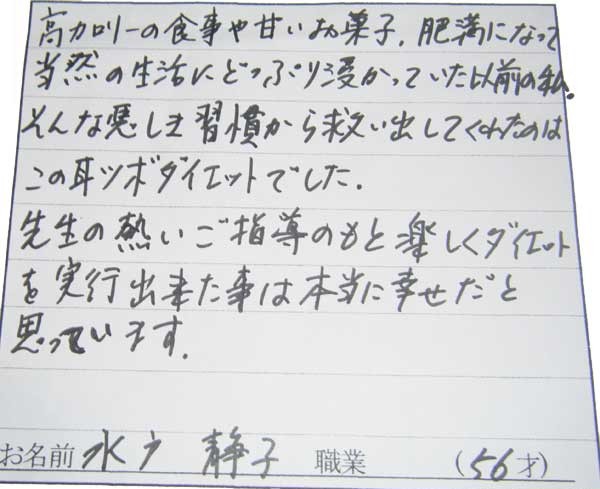 高カロリーの食事や甘いお菓子、肥満になって
当然の生活にどっぷり浸かっていた以前の私。
そんな悪しき習慣から救い出してくれたのは
この耳ツボダイエットでした。
先生の熱いご指導のもと楽しくダイエット
を実行出来た事は本当に幸せだと
思っています。
お名前 水戸 静子 職業 (56才)